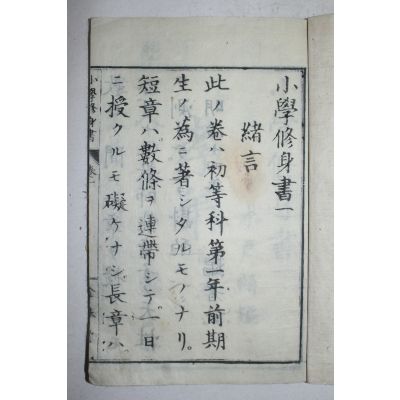 小學修身書一
緒言
此ノ卷ハ初等科第一年前期
生ノ為ニ著シタルモノナリ。
短章ハ數條ヲ連帶シテ一日
ニ授クルモ礙ケナシ長章ハ
小學修身書
卷一